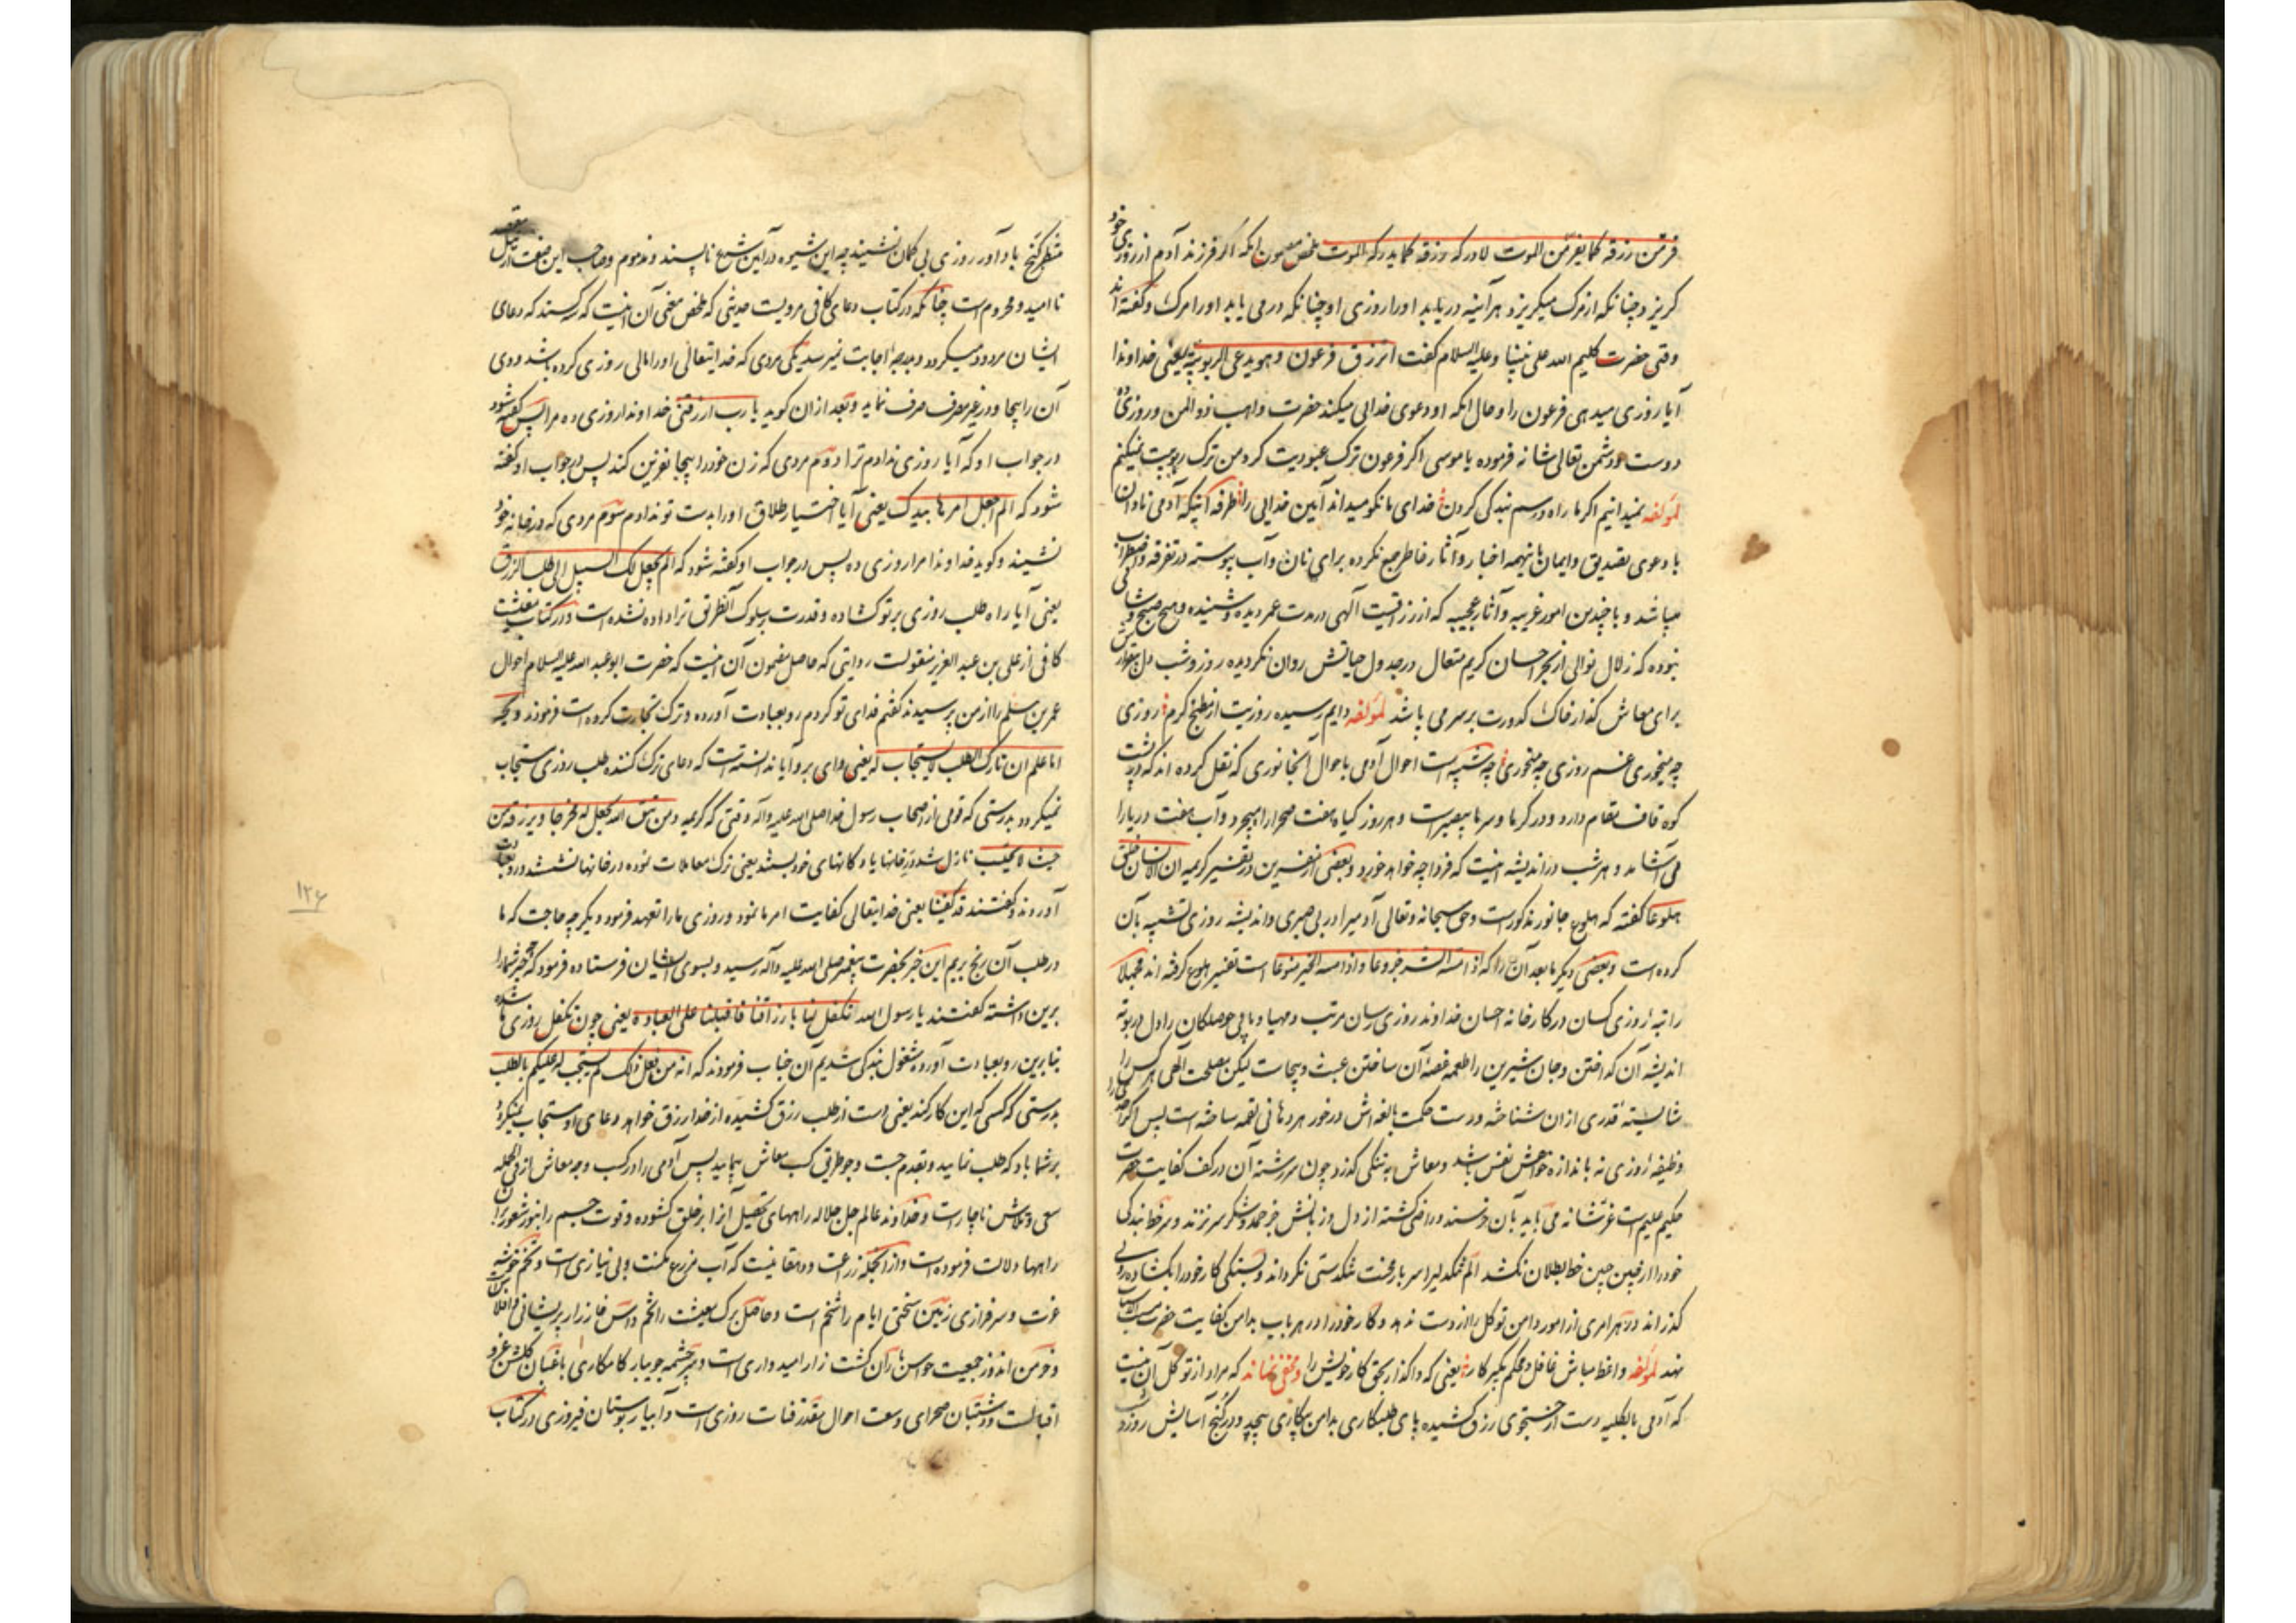 فرّ من رزقه کما یفرّ من الموت لادرکه رزقه کما یدرکه الموت ملخص مضمون انکه اگر فرزند آدم از روزی خود
کریزد چنانکه از مرک میکریزد هر آینه دریابد او را روزی او چنانکه در می یابد او را مرک و گفته اند
وقتی حضرت کلیم الله علی نبینا و علیه السلام گفت اترزق فرعون و هو یدعی الربوبیة یعنی خداوندا
آیا روزی میدهی فرعون را و حال انکه او دعوی خدایی میکند حضرت واهب ذو المنن و روزی ده
دوست و دشمن تعالی شانه فرموده یا موسی اکر فرعون ترک عبودیت کرد من ترک ربوبیت نمیکنم
لمؤلفه نمیدانیم اکر ما راه و رسم بندکی کردن خدای ما نکو میداند آیین خدایی را طرفه آنکه آدمی نادان
با دعوی تصدیق و ایمان باینهمه اخبار و آثار خاطر جمع نکرده برای نان و آب پیوسته در تفرقه و اضطراب
میباشد و با چندین امور غریبه و آثار عجیبه که از رزاقیت آلهی در مدت عمر دیده و شنیده و هیچ صبح و شامی
نبوده که زلال نوالی از بحر احسان کریم متعال در جدول حیاتش روان نکردیده روز و شب دل بیقرارش
برای معاش کذار خاک کدورت بر سر می باشد لمؤلفه دایم رسیده روزیت از مطبخ کرم روزی
چه میخوری غم روزی چه میخوری چه شبیه است احوال آدمی باحوال آنجانوری که نقل کرده اند که در پشت
کوه قاف مقام دارد و در کرما و سرما بیصبر است و هر روز کیاه هفت صحرا را میچرد و آب هفت دریا را
می آشامد و هر شب در اندیشه اینست که فردا چه خواهد خورد و بعضی از مفسرین در تفسیر کریمه ان الانسان خلق
هلوعا گفته که هلوع جانور مذکور است و حق سبحانه و تعالی آدمی را در بی صبری و اندیشه روزی تشبیه بآن
کرده است و بعضی دیکر ما بعد آن را که اذا مسه الشر جزوعا و اذا مسه الخیر منوعا است تفسیر هلوع کرفته اند مجملا
راتبه روزی کسان در کارخانه احسان خداوند روزی رسان مرتب و مهیا و ما بی حوصلکان را دل در بوته
اندیشه آن کداختن و جان شیرین را طعمه غصه آن ساختن عبث و بیجاست لیکن مصلحت الهی هر کس را
شایسته قدری از ان شناخته و دست حکمت بالغه اش در خور هر دهانی لقمه ساخته است پس اکر
وظیفه روزی نه باندازه خواهش نفس باشد و معاش به تنکی کذرد چون سررشته آن در کف کفایت حضرت
حکیم علیم است عز شانه می باید بآن خرسند و راضی کشته از دل و زبانش جز حمد و شکر سر نزند و سر خط بندکی
خود را از چین جبین خط بطلان نکشد
کذراند و در هر امری از امور دامن توکل را از دست ندهد و کار خود را در هر باب بدامن کفایت حضرت
نهد لمؤلفه واعظ مباش غافل و محکم بکیر کار یعنی که واکذار بحق کار خویش را و مخفی نماند که مراد از توکل آن نیست
که آدمی بالکلیه دست از جستجوی رزق کشیده پای طلبکاری بدامن بیکاری پیچد و در کنج آسایش
منتظر کنج باد آور روزی بی کمان نشیند چه این شیوه در آیین شرع ناپسند و مذموم و صاحب این صفت
ناامید و محروم است چنانکه در کتاب دعای کافی مرویست حدیثی که ملخص معنی آن اینست که سه کسند که دعای
ایشان مردود میکردد و بدرجه اجابت نمیرسد یکی مردی که خدایتعالی او را مالی روزی کرده باشد و وی
آن را بیجا و در غیر مصرف صرف نماید و بعد از ان کوید یا رب ارزقنی خداوندا روزی ده مرا پس گفته شود
در جواب او که آیا روزی ندادم ترا دوم مردی که زن خود را بیجا نفرین کند پس در جواب او گفته
شود که الم اجعل امرها بیدک یعنی آیا اختیار طلاق او را بدست تو ندادم سوم مردی که در خانه خود
نشیند و کوید خداوندا مرا روزی ده پس در جواب او گفته شود که الم اجعل لک السبیل الی طلب الرزق
یعنی آیا راه طلب روزی بر تو کشاده و قدرت سلوک آنطریق ترا داده نشده است و در کتاب معیشت
کافی از علی بن عبد العزیز منقولست روایتی که حاصل مضمون آن اینست که حضرت ابو عبد الله علیه السلام احوال
عمر بن مسلم را از من پرسیدند گفتم فدای تو کردم رو بعبادت آورده و ترک تجارت کرده است فرمودند ویحه
اما علم ان تارک الطلب لا یستجاب له یعنی وای بر او آیا ندانسته است که دعای ترک کننده طلب روزی مستجاب
نمیکردد بدرستی که قومی از اصحاب رسول خدا صلی الله علیه و آله وقتی که کریمه و من یتق الله یجعل له مخرجا و یرزقه من
حیث لا یحتسب نازل شد در خانها یا دکانهای خود بستند یعنی ترک معاملات نموده در خانها نشستند و رو بعبادت
آوردند و گفتند قد کفینا یعنی خدایتعالی کفایت امر ما نمود و روزی ما را تعهد فرمود دیکر چه حاجت که ما
در طلب آن رنج بریم این خبر بحضرت پیغمبر صلی الله علیه و آله رسید و بسوی ایشان فرستاده فرمود که چه چیز شما را
برین داشته گفتند یا رسول الله تکفل لنا بارزاقنا فاقبلنا علی العبادة یعنی چون تکفل روزی ما شده
بنابرین رو بعبادت آورده مشغول بندکی شدیم آن جناب فرمودند که انه من فعل ذلک لم یستجب له علیکم بالطلب
بدرستی که کسی که این کار کند یعنی دست از طلب رزق کشیده از خدا رزق خواهد دعای او مستجاب نمیکردد
بر شما باد که طلب نمایید و بقدم جست و جو طریق کسب معاش بپیمایید پس آدمی را در کسب وجه معاش از فی الجمله
سعی و تلاش ناچار است و خداوند عالم جل جلاله راههای تحصیل آنرا بر خلق کشوده و قوت جسم را بنور شعور بر آن
راهها دلالت فرموده است و از آنجمله زراعت و دهقانیست که آب مزرع مکنت و بی نیازی است و تخم خوشه
عزت و سرفرازی زمین سختی ایام را شخم است و حاصل برک معیشت را تخم داس خارزار پریشانی و افلاس
و خرمن اندوز جمعیت حواس باران کشت زار امیدواری است و سرچشمه جویبار کامکاری باغبان کلشن عز و
اقبالست و دشتبان صحرای وسعت احوال مقدر قنات روزی است و آبیار بوستان فیروزی در کتاب
۱۲۶